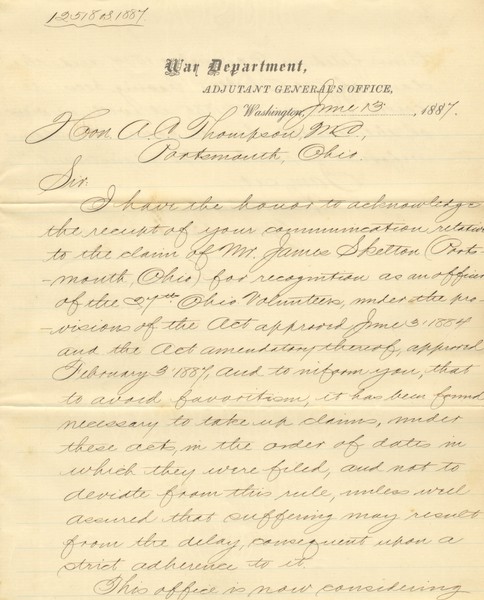 12518 B 1887.
War Department,
ADJUTANT GENERAL'S OFFICE,
Washington, June 13, 1887.
Hon. A. C. Thompson, M.C.,
Portsmouth, Ohio.
Sir:
I have the honor to acknowledge
the receipt of your communication relative
to the claim of Mr. James Skelton (Ports-
-mouth, Ohio) for recognition as an officer
of the 27th Ohio Volunteers, under the pro-
-visions of the Act approved June 3, 1884
and the Act amendatory thereof, approved
February 3, 1887, and to inform you, that
to avoid favoritism, it has been found
necessary to take up claims, under
these acts, in the order of dates in
which they were filed, and not to
deviate from this rule, unless well
assured that suffering may result
from the delay, consequent upon a
strict adherence to it.
This office is now considering